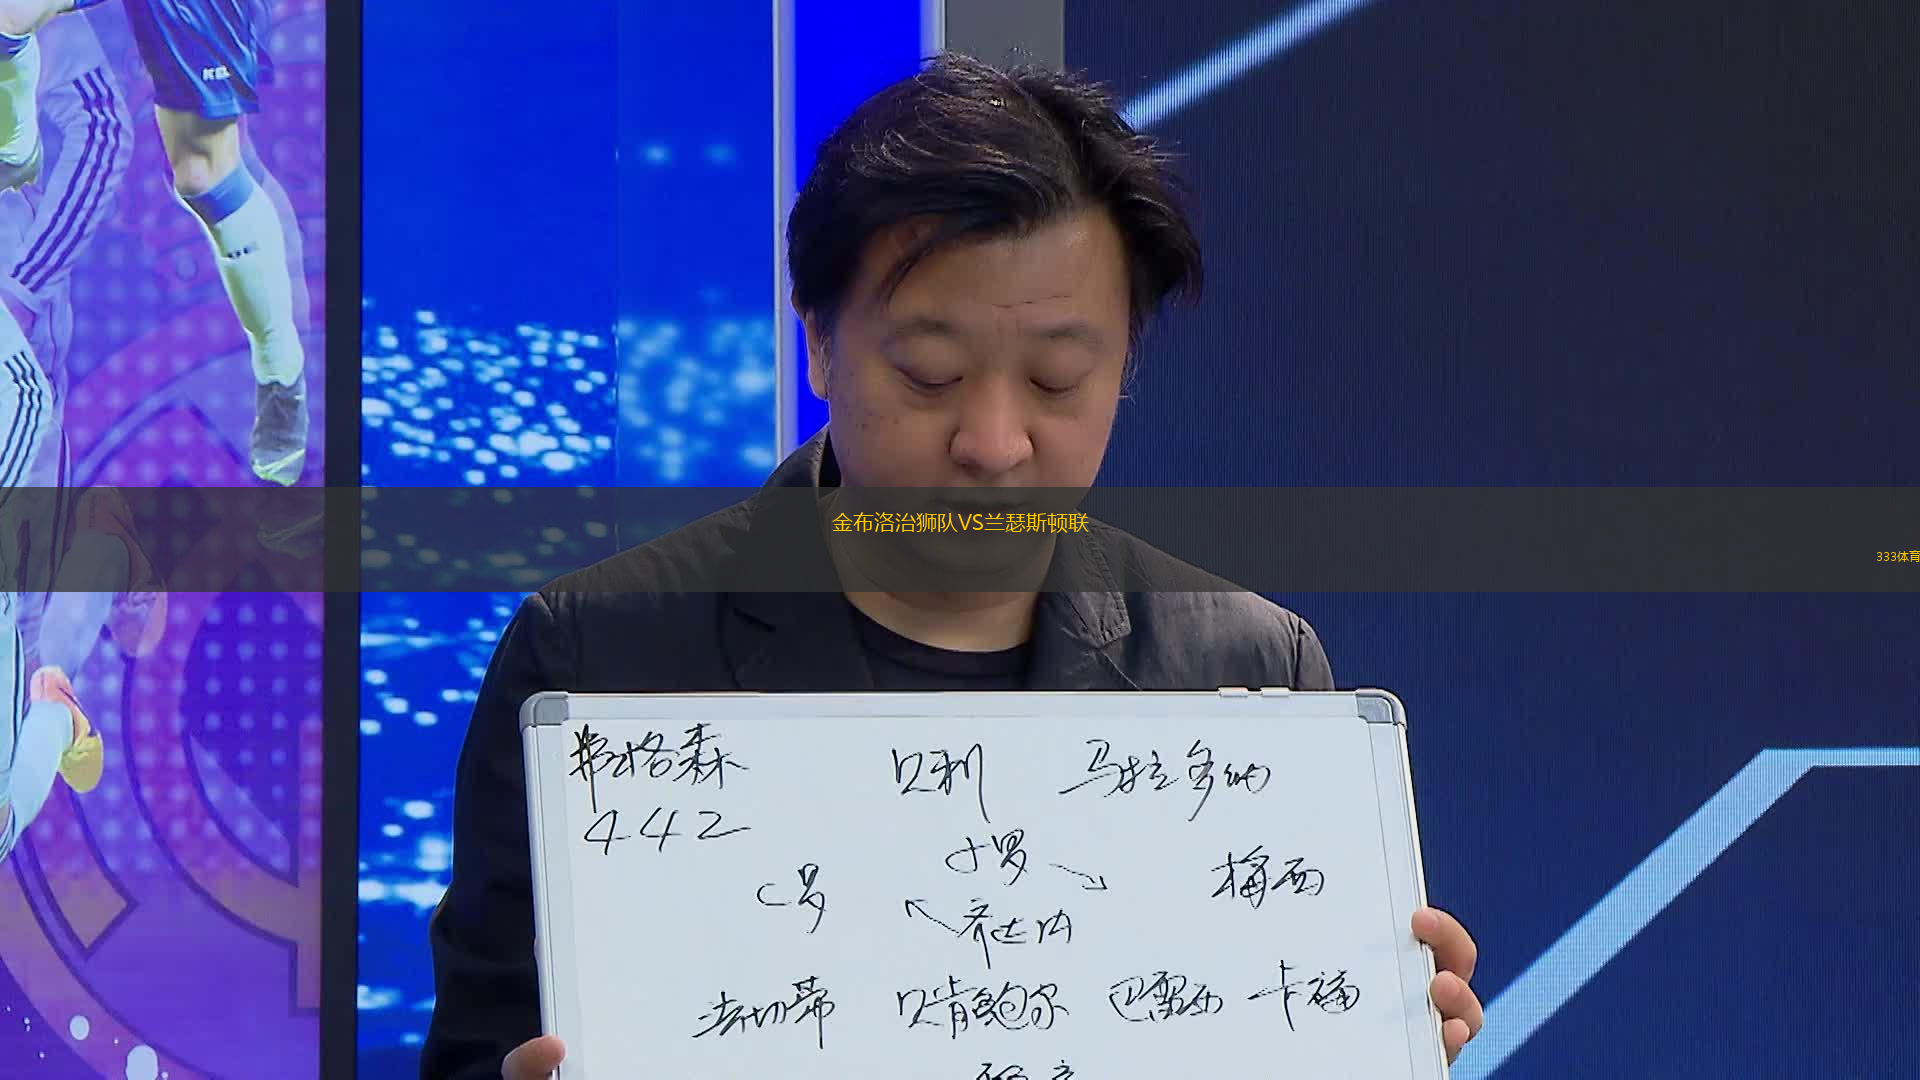 KG
金布洛治狮队VS兰瑟斯顿联
333体育
弗格森 贝利 马拉多纳
442
小罗
C罗 梅西
齐达内
法切蒂 贝肯鲍尔 巴雷西 卡福